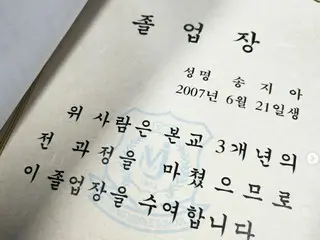 졸 업 장
성명 송 지 아
2007년 6월 21일생
위 사람은 본교 3개년의
전 과정을 마쳤으므로
이 졸업장을 수여합니다